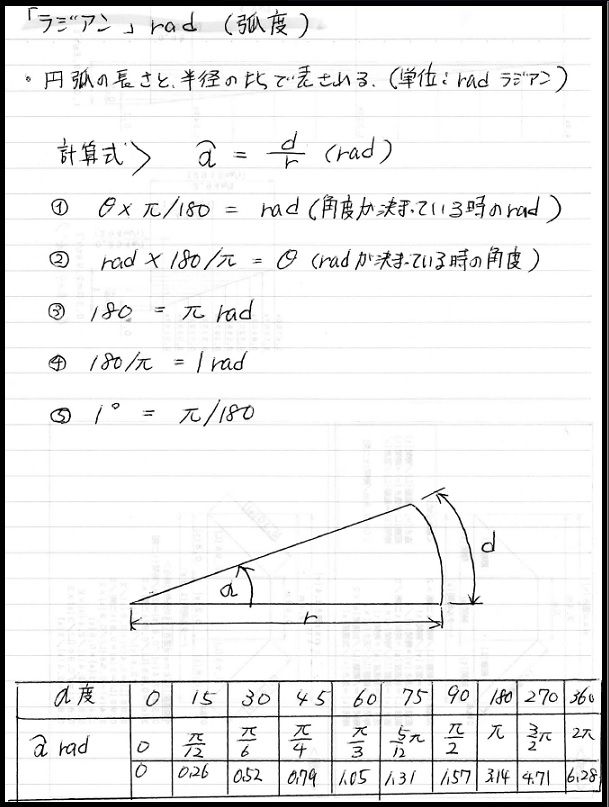 「ラジアン」rad (弧度)
・円弧の長さと、半径の比で表される。(単位:rad ラジアン)
計算式> â = d/r (rad)
① θ × π/180 = rad (角度が決まっている時のrad)
② rad × 180/π = θ (radが決まっている時の角度)
③ 180 = π rad
④ 180/π = 1 rad
⑤ 1° = π/180
d
a
r
a度 0 15 30 45 60 75 90 180 270 360
â rad 0 π/12 π/6 π/4 π/3 5/12π π/2 π 3/2π 2π
0 0.26 0.52 0.79 1.05 1.31 1.57 3.14 4.71 6.28